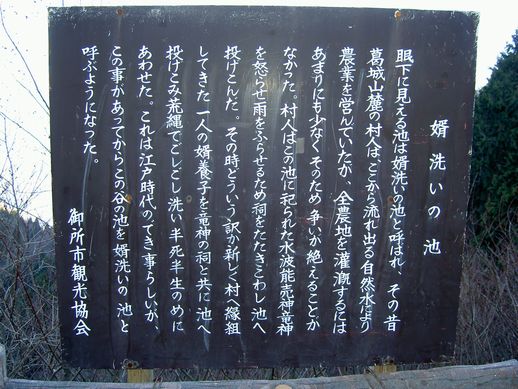 婿洗いの池
眼下に見える池は婿洗いの池と呼ばれ、その昔
葛城山麓の村人は、ここから流れ出る自然水により
農業を営んでいたが、全農地を灌漑するには
あまりにも少なくそのため争いが絶えることが
なかった。村人はこの池に祀られた水波能売神竜神
を怒らせ雨をふらせるため祠をたたきこわし池へ
投げこんだ。その時どういう訳か新しく村へ縁組
してきた一人の婿養子を竜神の祠と共に池へ
投げこみ荒縄でごしごし洗い半死半生のめに
あわせた。これは江戸時代の、でき事らしいが、
この事があってからこの谷の池を婿洗いの池と
呼ぶようになった。
御所市観光協会